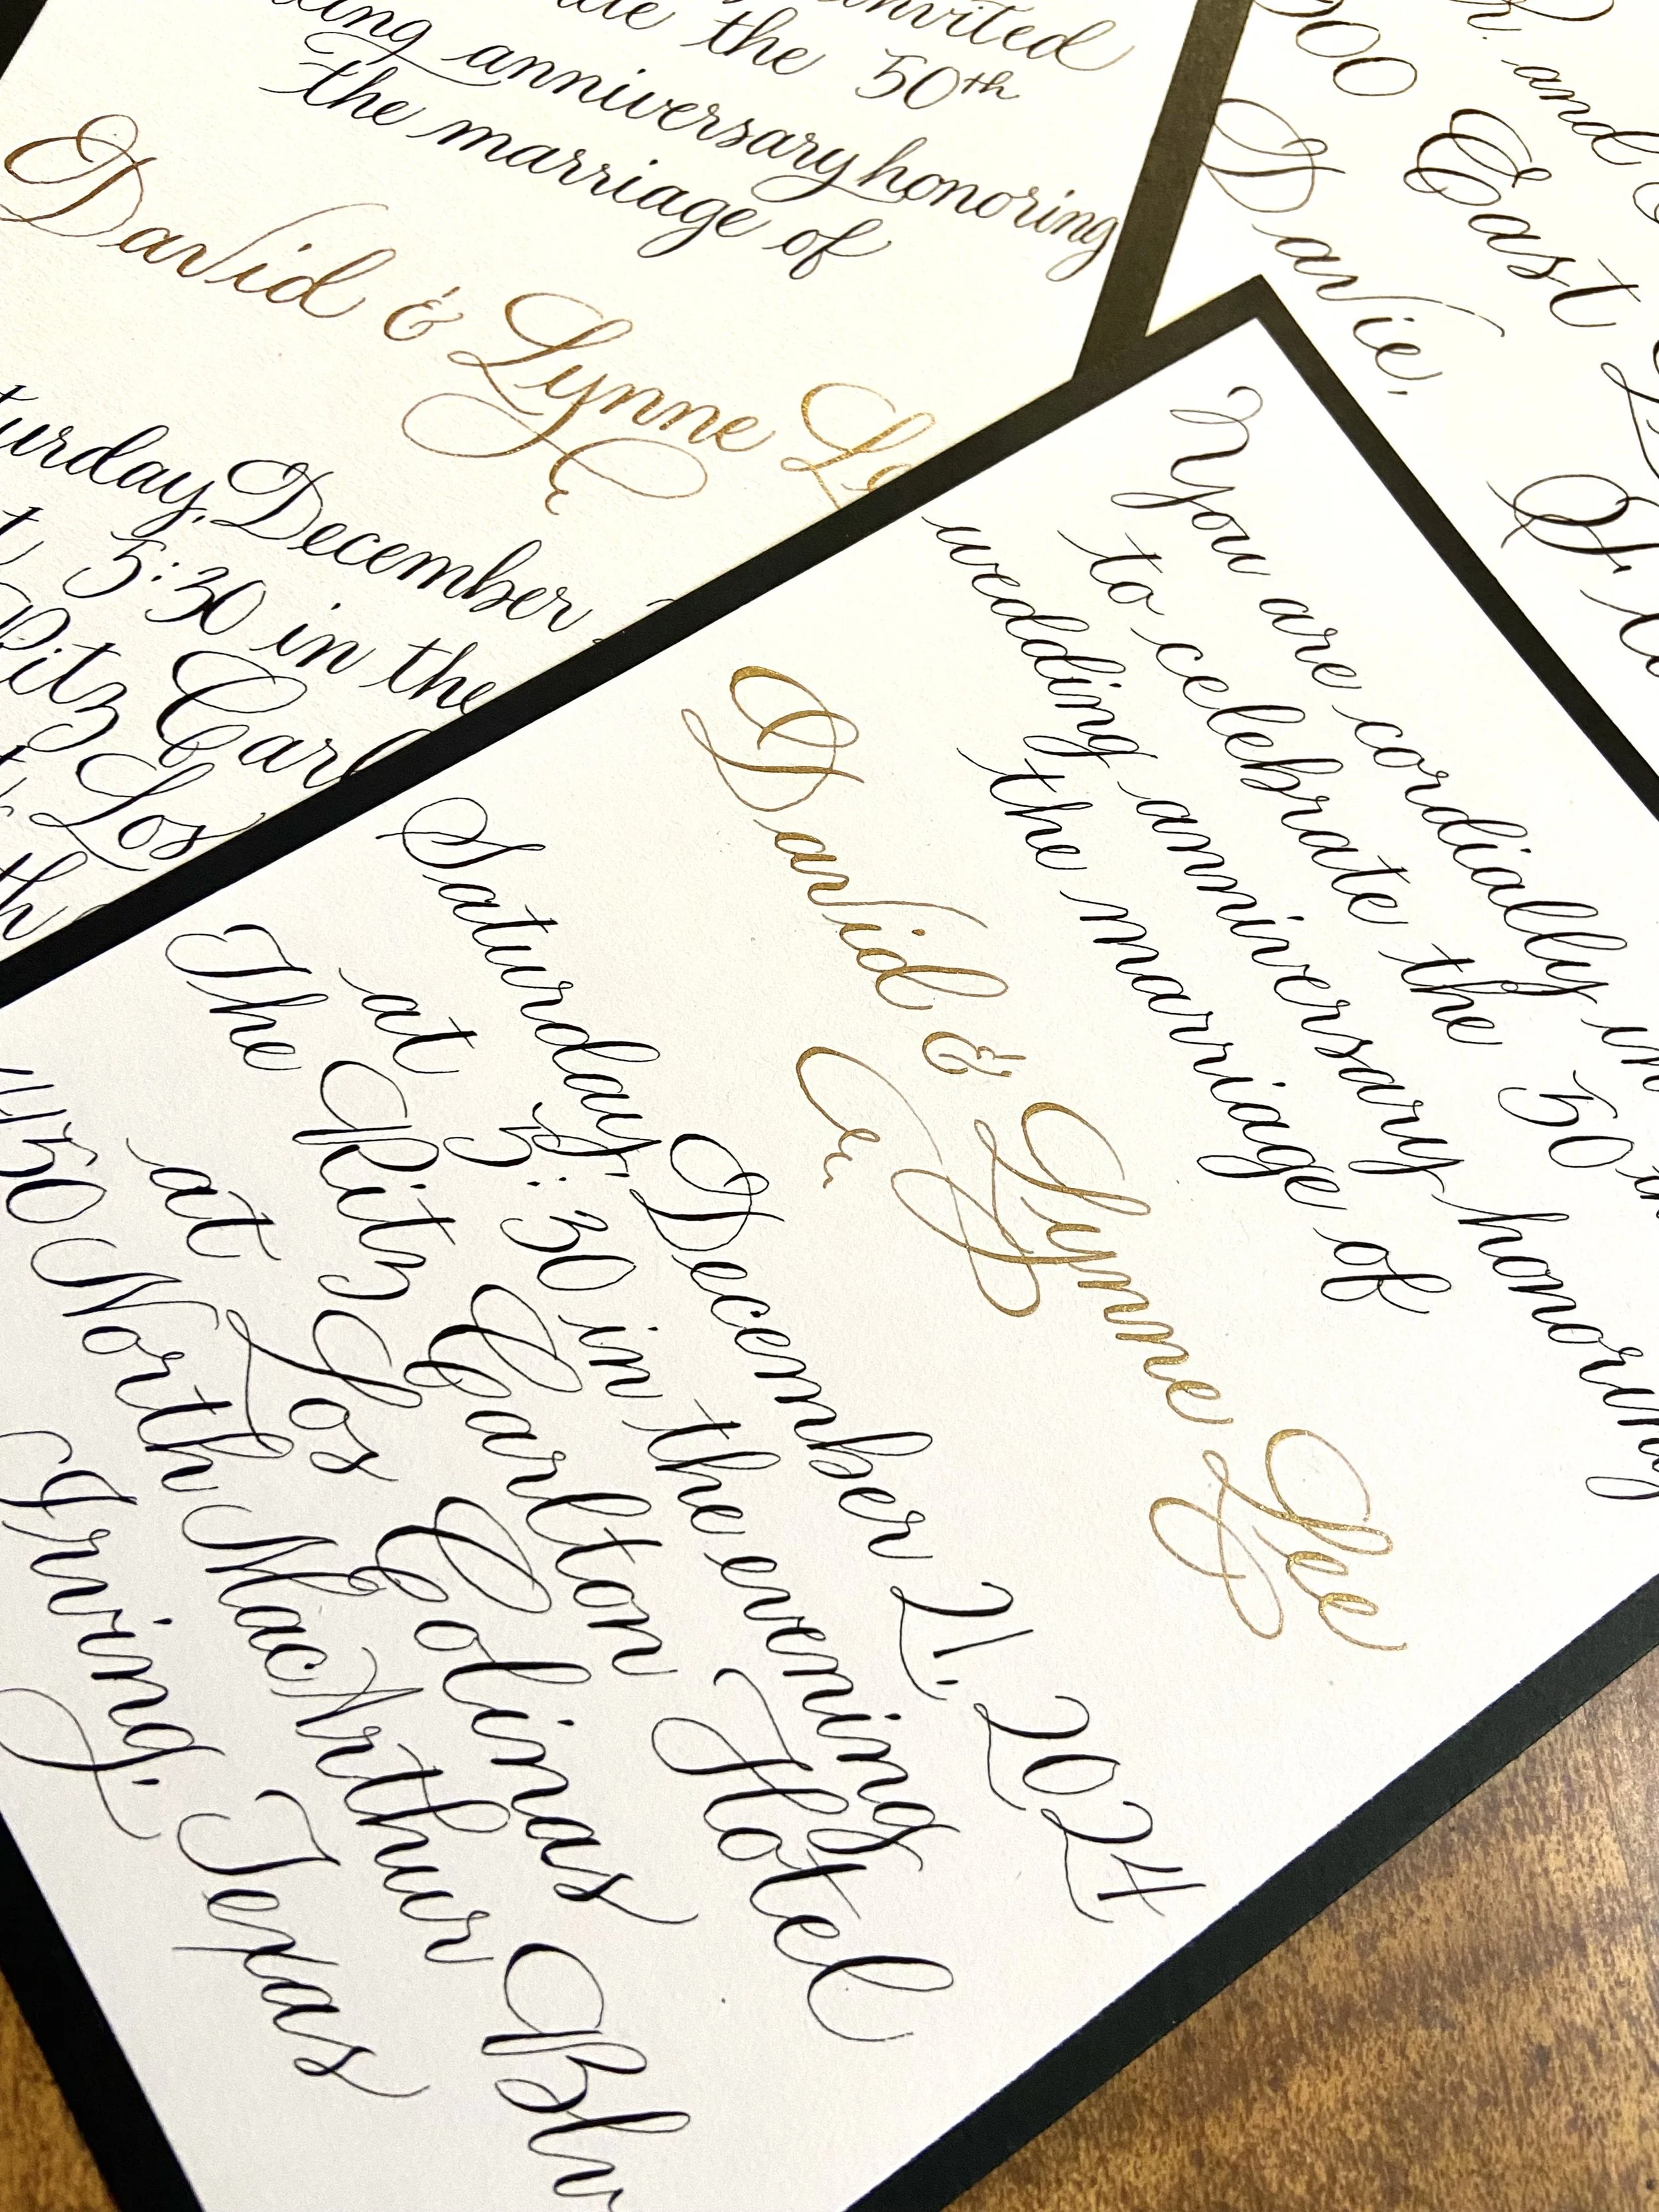 invited
the 50th
anniversary honoring
the marriage of
David & Lynne
December
5:30 in the
Ritz
Los
and
East
Davie,
You are cordially
to celebrate the 50
wedding anniversary honoring
the marriage of
David & Lynne Lee
Saturday, December 21, 2024
at 5:30 in the evening
The Ritz Carlton Hotel
at Los Colinas
North MacArthur
Irving, Texas